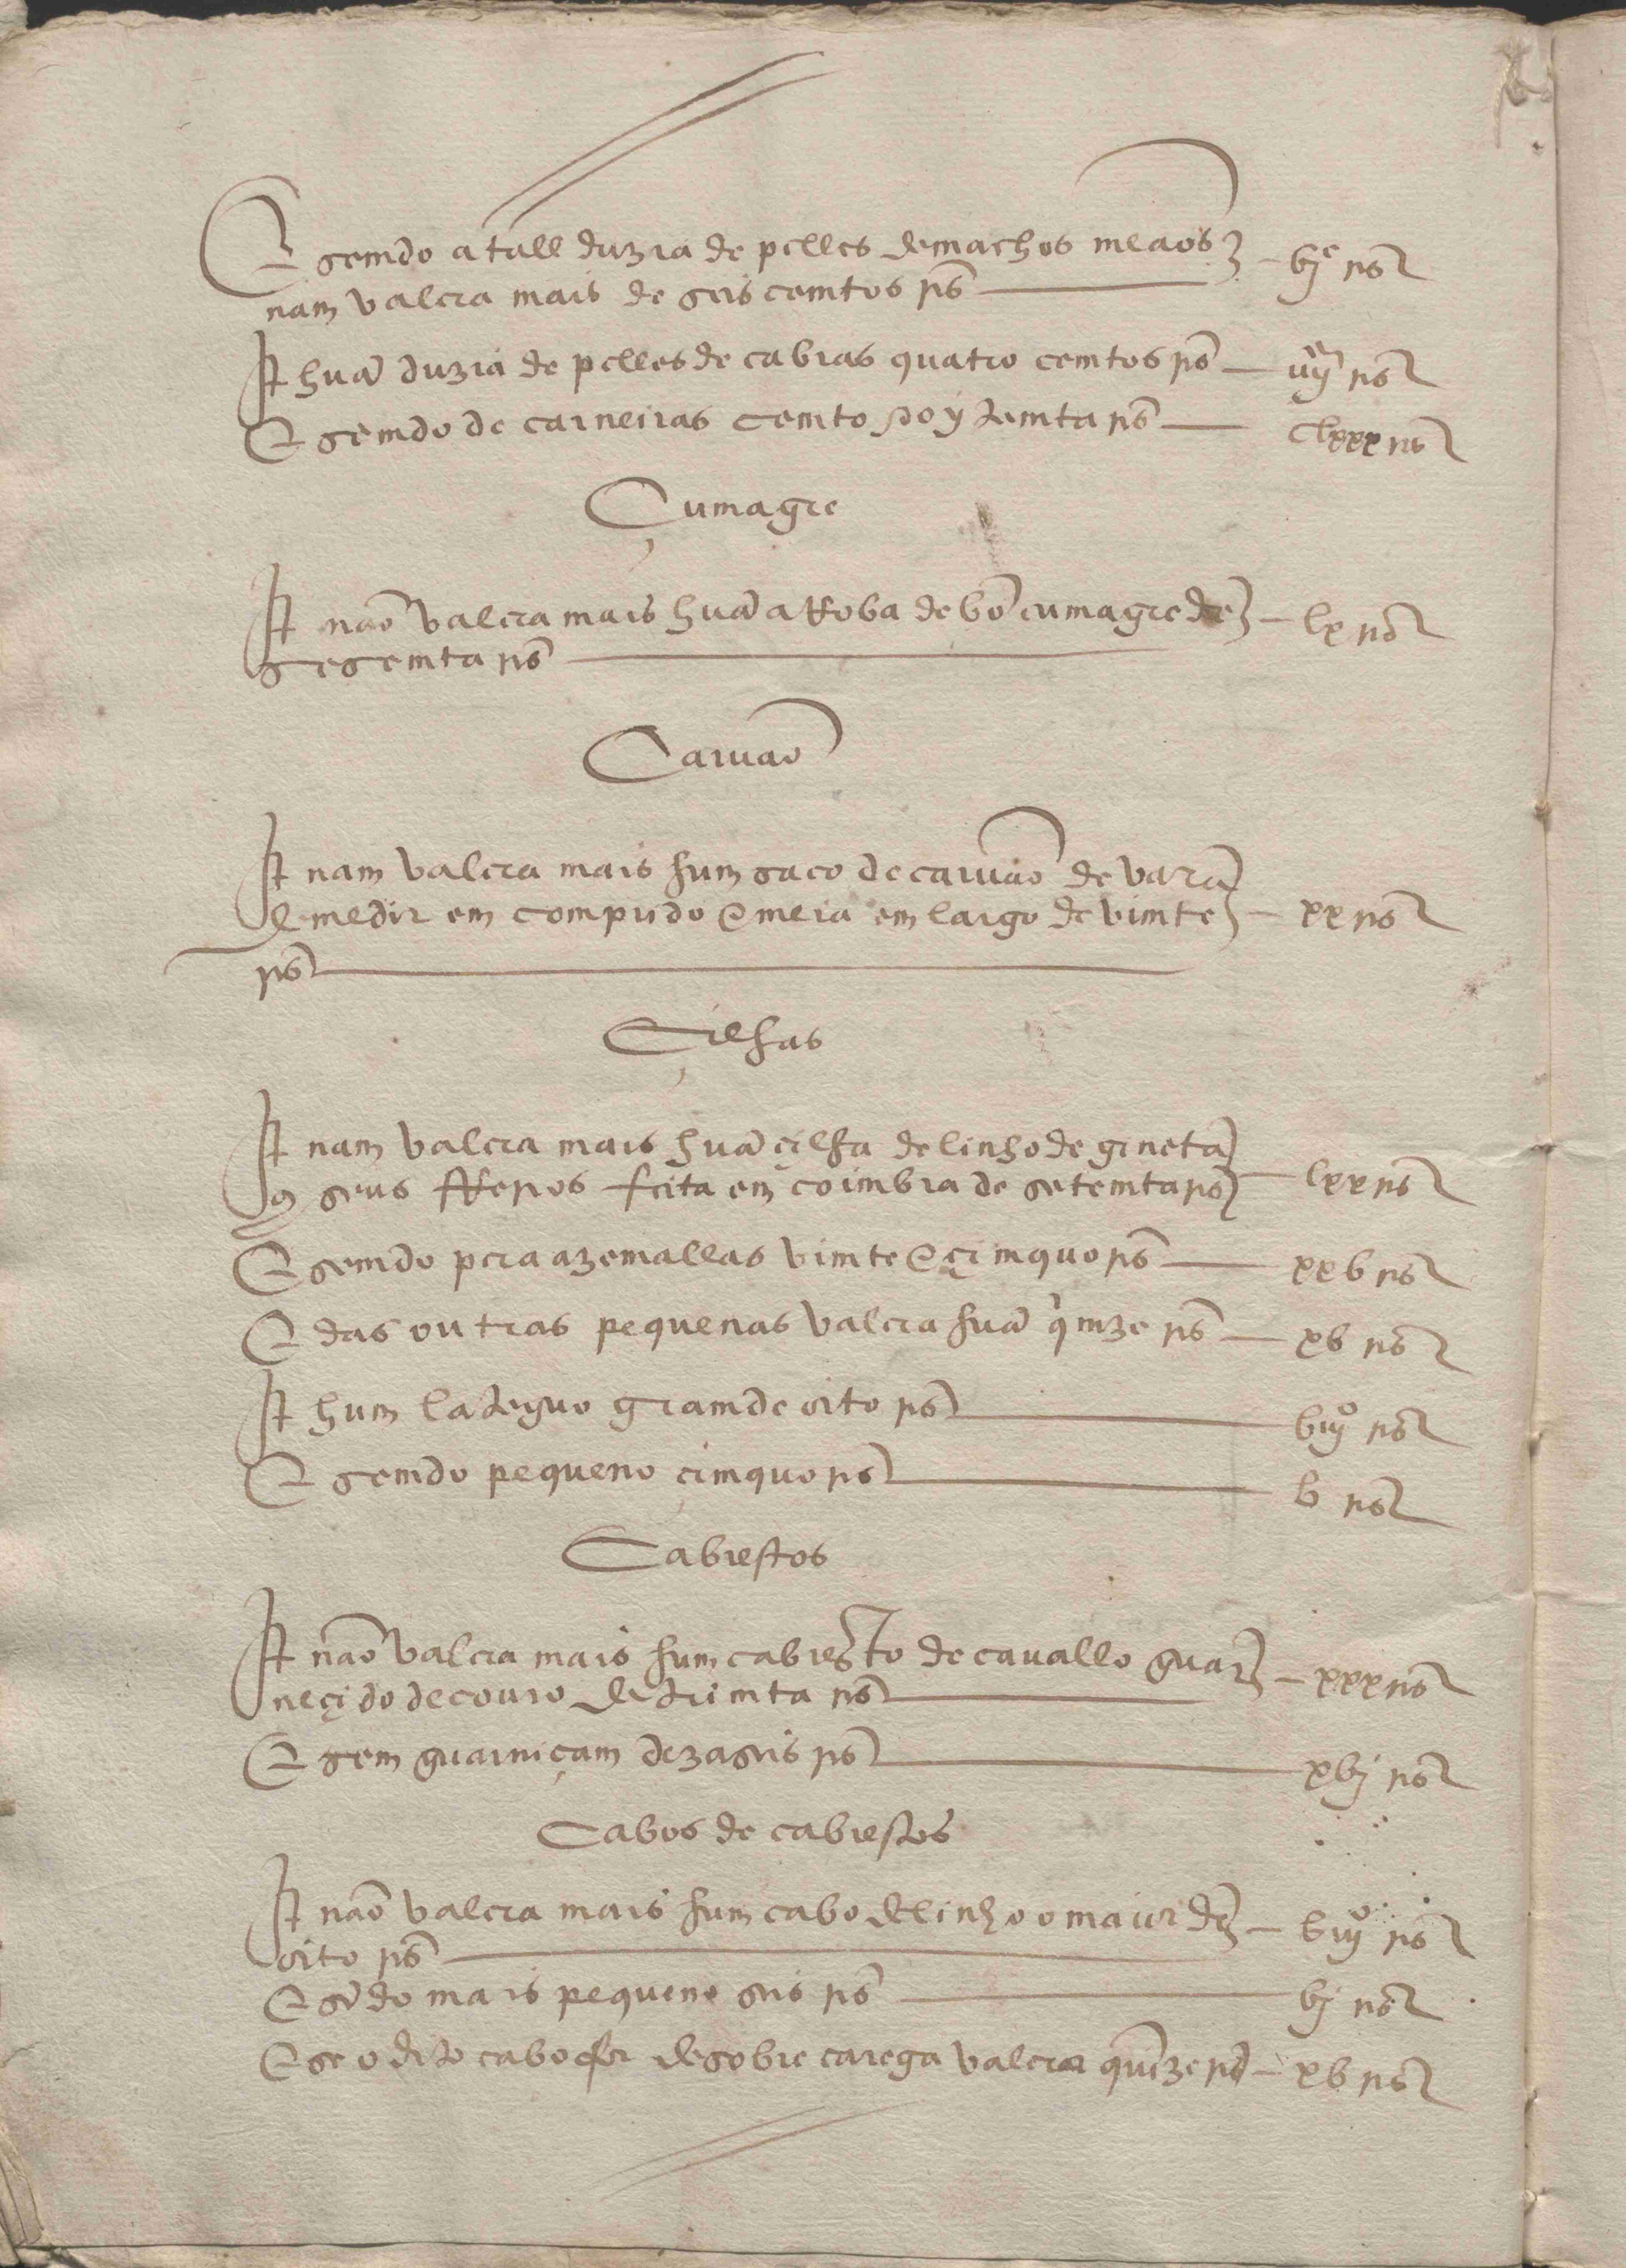 E semdo a tall duzia de pelles de machos meaõs – bjc rs
nam valera mais de seis cemtos rs
It huã duzia de pelles de cabras quatro cemtos rs – iiijc rs
E semdo de carneiras cemto & oytemta rs – clxxx rs
Çumagre
It não valera mais huã arroba de bõ çumagre de – lx rs
sesemta rs
Caruão
It nam valera mais hum saco de caruão de vara
de medir em comprido e meia em largo de vimte – xx rs
rs
Çilhas
It nam valera mais huã çilha de linho de gineta
cõ seus ferros feita em coimbra de setemta rs – lxx rs
E semdo pera azemallas vimte e çimquo rs – xxb rs
E das outras pequenas valera huã qimze rs – xb rs
It hum lateguo gramde oito rs – biijo rs
E semdo pequeno çimquo rs – b rs
Cabrestos
It não valera mais hum cabresto de cauallo guar – xxx rs
neçido de couro de trimta rs
E sem guarniçam dezaseis rs – xbj rs
Cabos de cabrestos
It não valera mais hum cabo de linho o maior de – biijo rs
oito rs
E sẽdo mais pequeno seis rs – bj rs
E se o dito cabo for de sobre carega valera quimze rs – xb rs